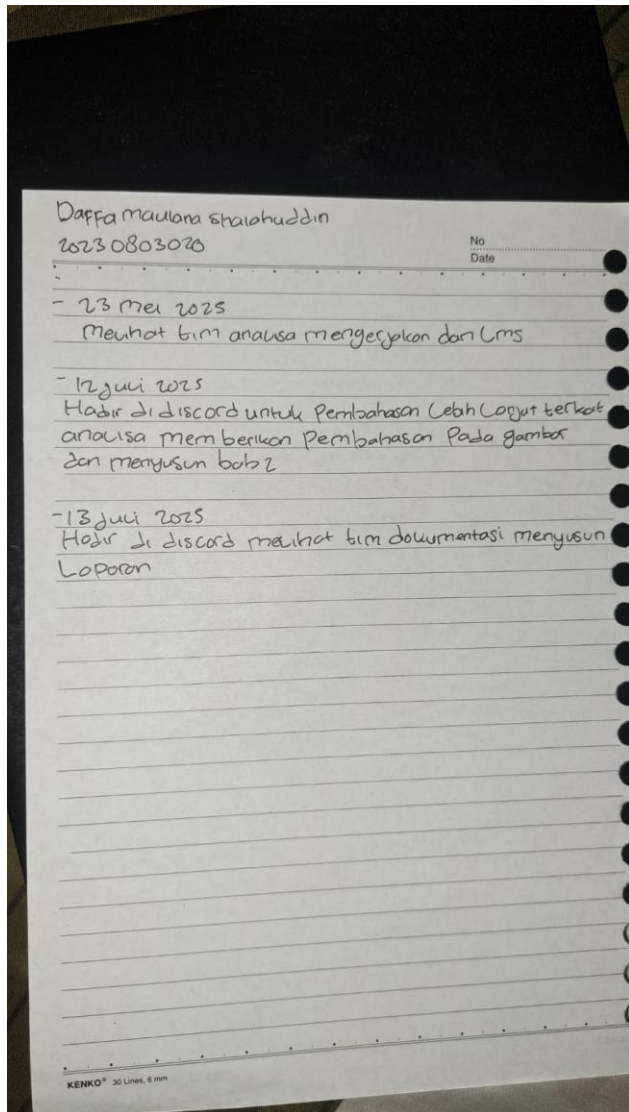 Daffa maulana shalahuddin
20230803020
No
Date
- 23 mei 2025
melihat tim analisa mengerjakan dari Lms
- 12 juli 2025
Hadir di discord untuk Pembahasan Lebih Lanjut terkait
analisa memberikan Pembahasan Pada gambar
dan menyusun bab 2
- 13 Juli 2025
Hadir di discord melihat tim dokumentasi menyusun
Laporan
KENKO® 30 Lines, 6 mm